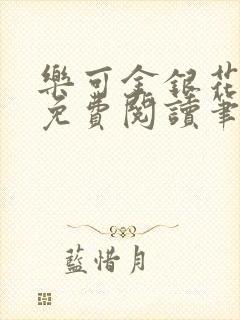 樂可金銀花
免費閱讀筆
藍惜月